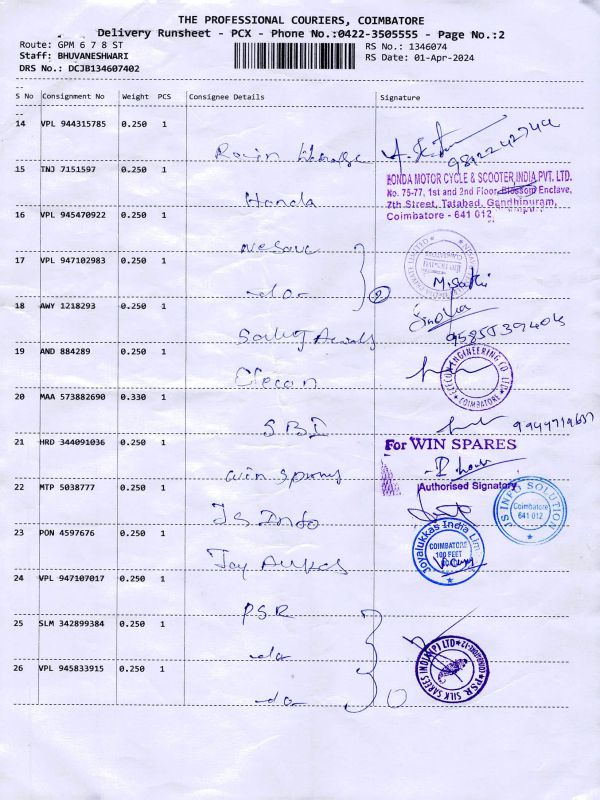 THE PROFESSIONAL COURIERS, COIMBATORE
Delivery Runsheet - PCX - Phone No.:0422-3505555 - Page No.:2
Route: GPM 6 7 8 ST
RS No.: 1346074
Staff: BHUVANESHWARI
RS Date: 01-Apr-2024
DRS No.: DCJB134607402
S No Consignment No Weight PCS Consignee Details Signature
14 VPL 944315785 0.250 1
15 TNJ 7151597 0.250 1
HONDA MOTOR CYCLE & SCOOTER INDIA PVT. LTD.
No. 75-77, 1st and 2nd Floor, Blossom Enclave,
7th Street, Tatabad, Gandhipuram,
Coimbatore - 641 012.
Honda
16 VPL 945470922 0.250 1
17 VPL 947102983 0.250 1
-do-
2
M. Sathi
18 AWY 1218293 0.250 1
Indhu
19 AND 884289 0.250 1
CIECON ENGINEERING CO. LTD.
COIMBATORE
20 MAA 573882690 0.330 1
SBI
21 HRD 344091036 0.250 1
For WIN SPARES
Authorised Signatory
22 MTP 5038777 0.250 1
JS Info
JS INFO SOLUTION
Coimbatore
641 012
23 PON 4597676 0.250 1
Joyalukkas India Lim
COIMBATORE
100 FEET
24 VPL 947107017 0.250 1
PSR
25 SLM 342899384 0.250 1
-do-
PSR SILK SAREES INDIA (P) LTD
26 VPL 945833915 0.250 1
-do-